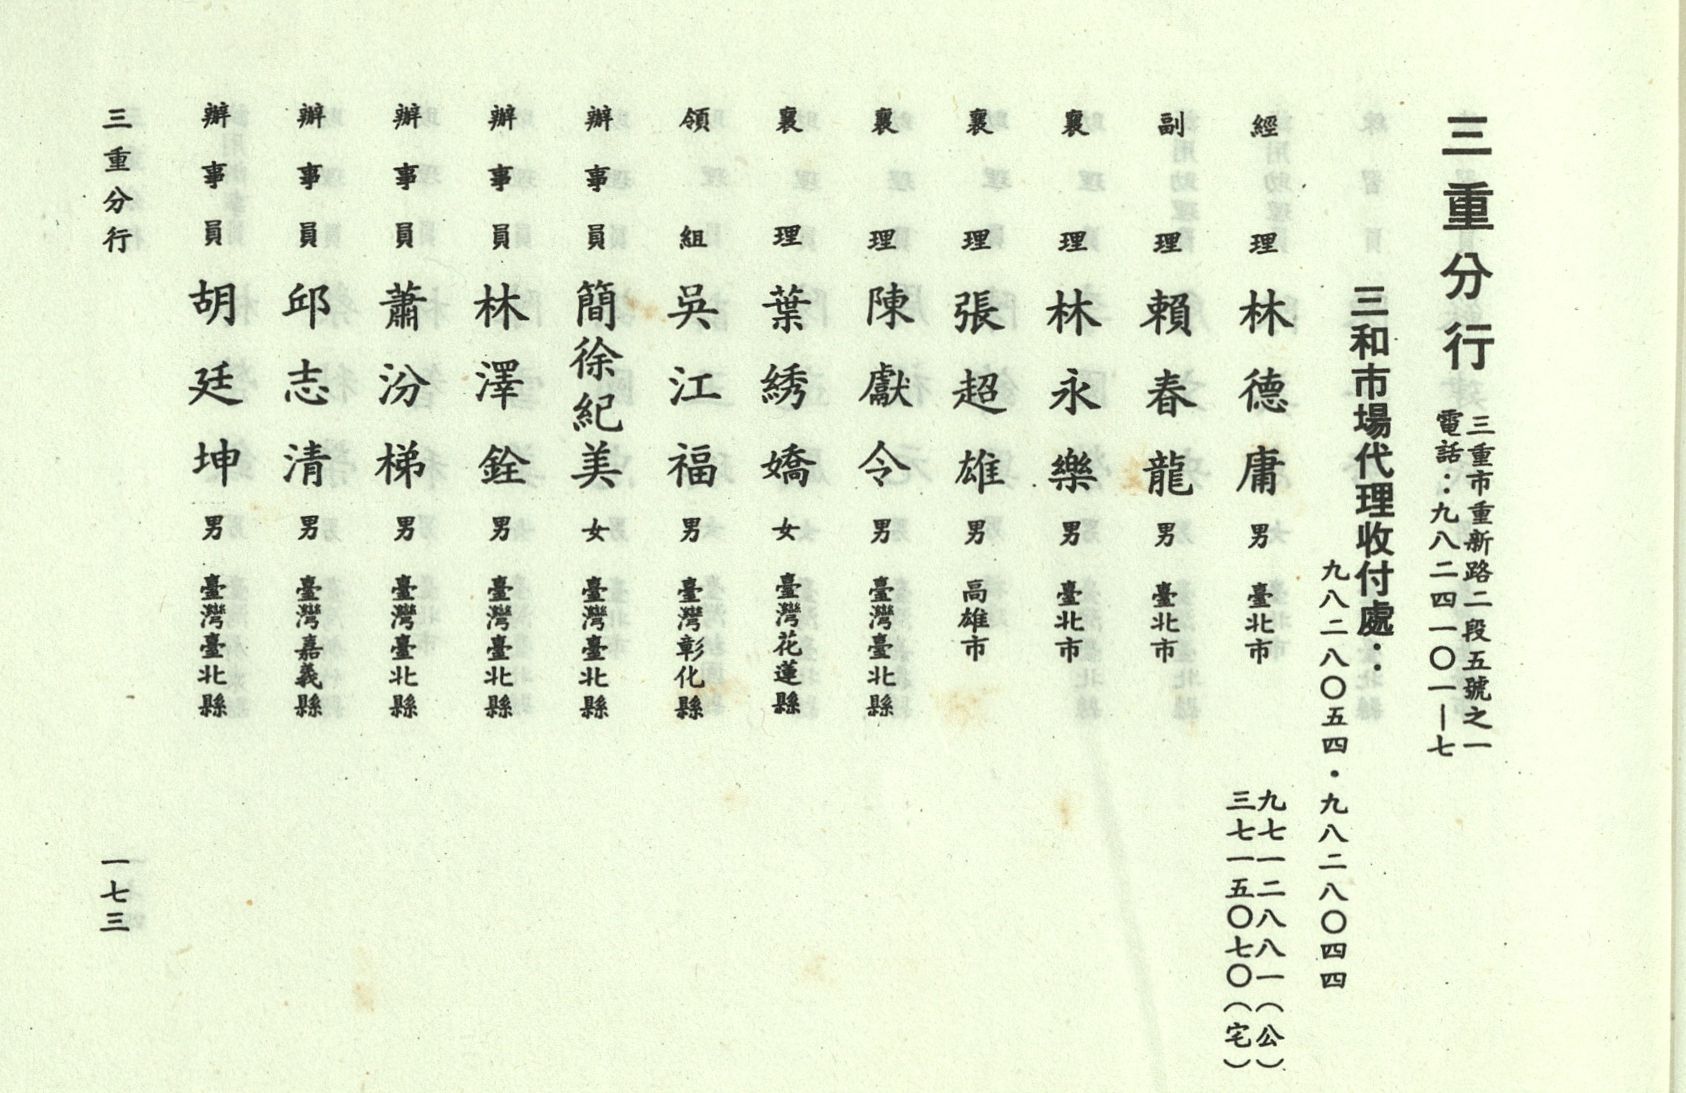 三重分行
三重市重新路二段五號之一
電話：九八二四一〇一—七
三和市場代理收付處：
九八二八〇五四・九八二八〇四四
經理 林德庸 男 臺北市
九七一二八八一（公）
三七一五〇七〇（宅）
副理 賴春龍 男 臺北市
襄理 林永樂 男 臺北市
襄理 張超雄 男 高雄市
襄理 陳獻令 男 臺灣臺北縣
襄理 葉綉嬌 女 臺灣花蓮縣
領組 吳江福 男 臺灣彰化縣
辦事員 簡徐紀美 女 臺灣臺北縣
辦事員 林澤銓 男 臺灣臺北縣
辦事員 蕭汾梯 男 臺灣臺北縣
辦事員 邱志清 男 臺灣嘉義縣
辦事員 胡廷坤 男 臺灣臺北縣
三重分行
一七三